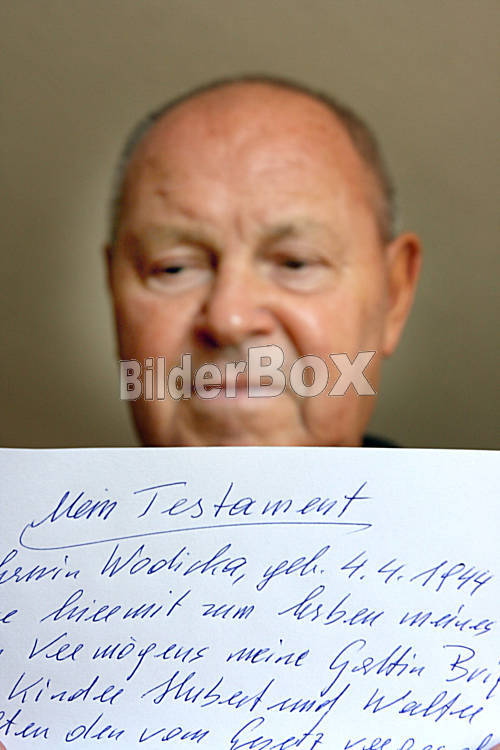 BilderBOX
Mein Testament
Erwin Wodicka, geb. 4.4.1944
e hiermit zum Erben meines
n Vermögens meine Gattin Brig
Kinder Hubert und Walter
ten den vom Gesetz